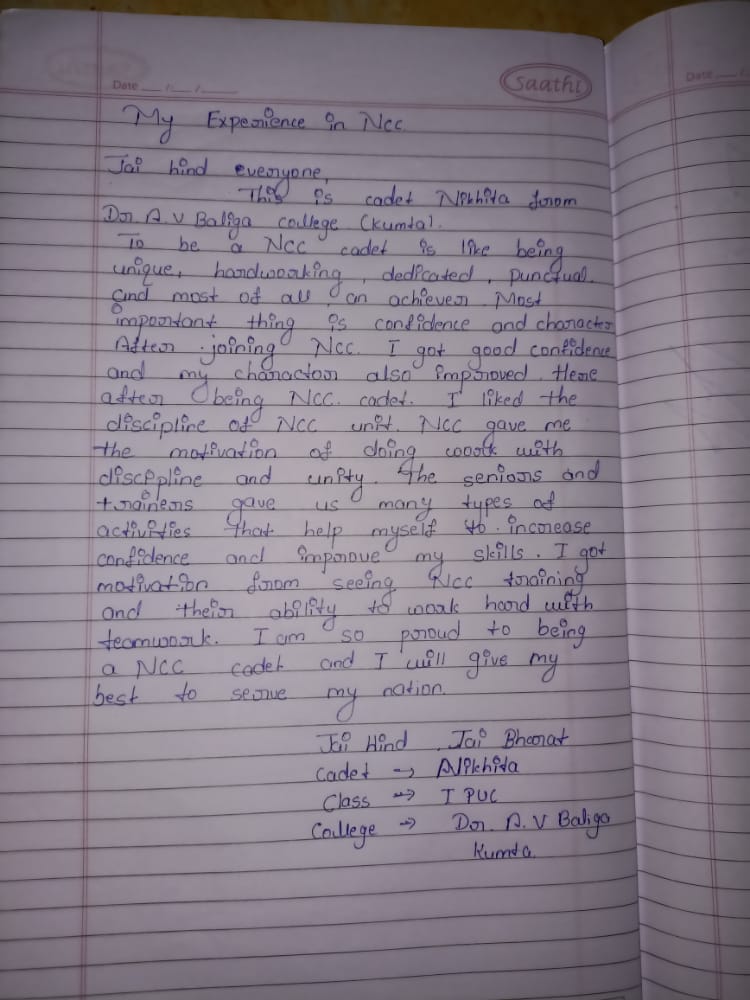 Saathi
Date __/__/____
Date __/
My Experience in Ncc
Jai hind everyone,
This is cadet Nikhita from
Dr. A. V Baliga college (kumta).
To be a NCC cadet is like being
unique, hardworking, dedicated, punctual.
and most of all, an achiever. Most
important thing is confidence and character
After joining NCC. I got good confidence
and my character also improved. Here
after being NCC. cadet. I liked the
discipline of NCC unit. NCC gave me
the motivation of doing work with
discipline and unity. The seniors and
trainers gave us many types of
activities that help myself to. increase
confidence and improve my skills. I got
motivation from seeing NCC training
and their ability to work hard with
teamwork. I am so proud to being
a NCC cadet and I will give my
best to serve my nation.
Jai Hind. Jai Bharat
Cadet → Nikhita
Class → I PUC
College → Dr. A. V Baliga
Kumta.